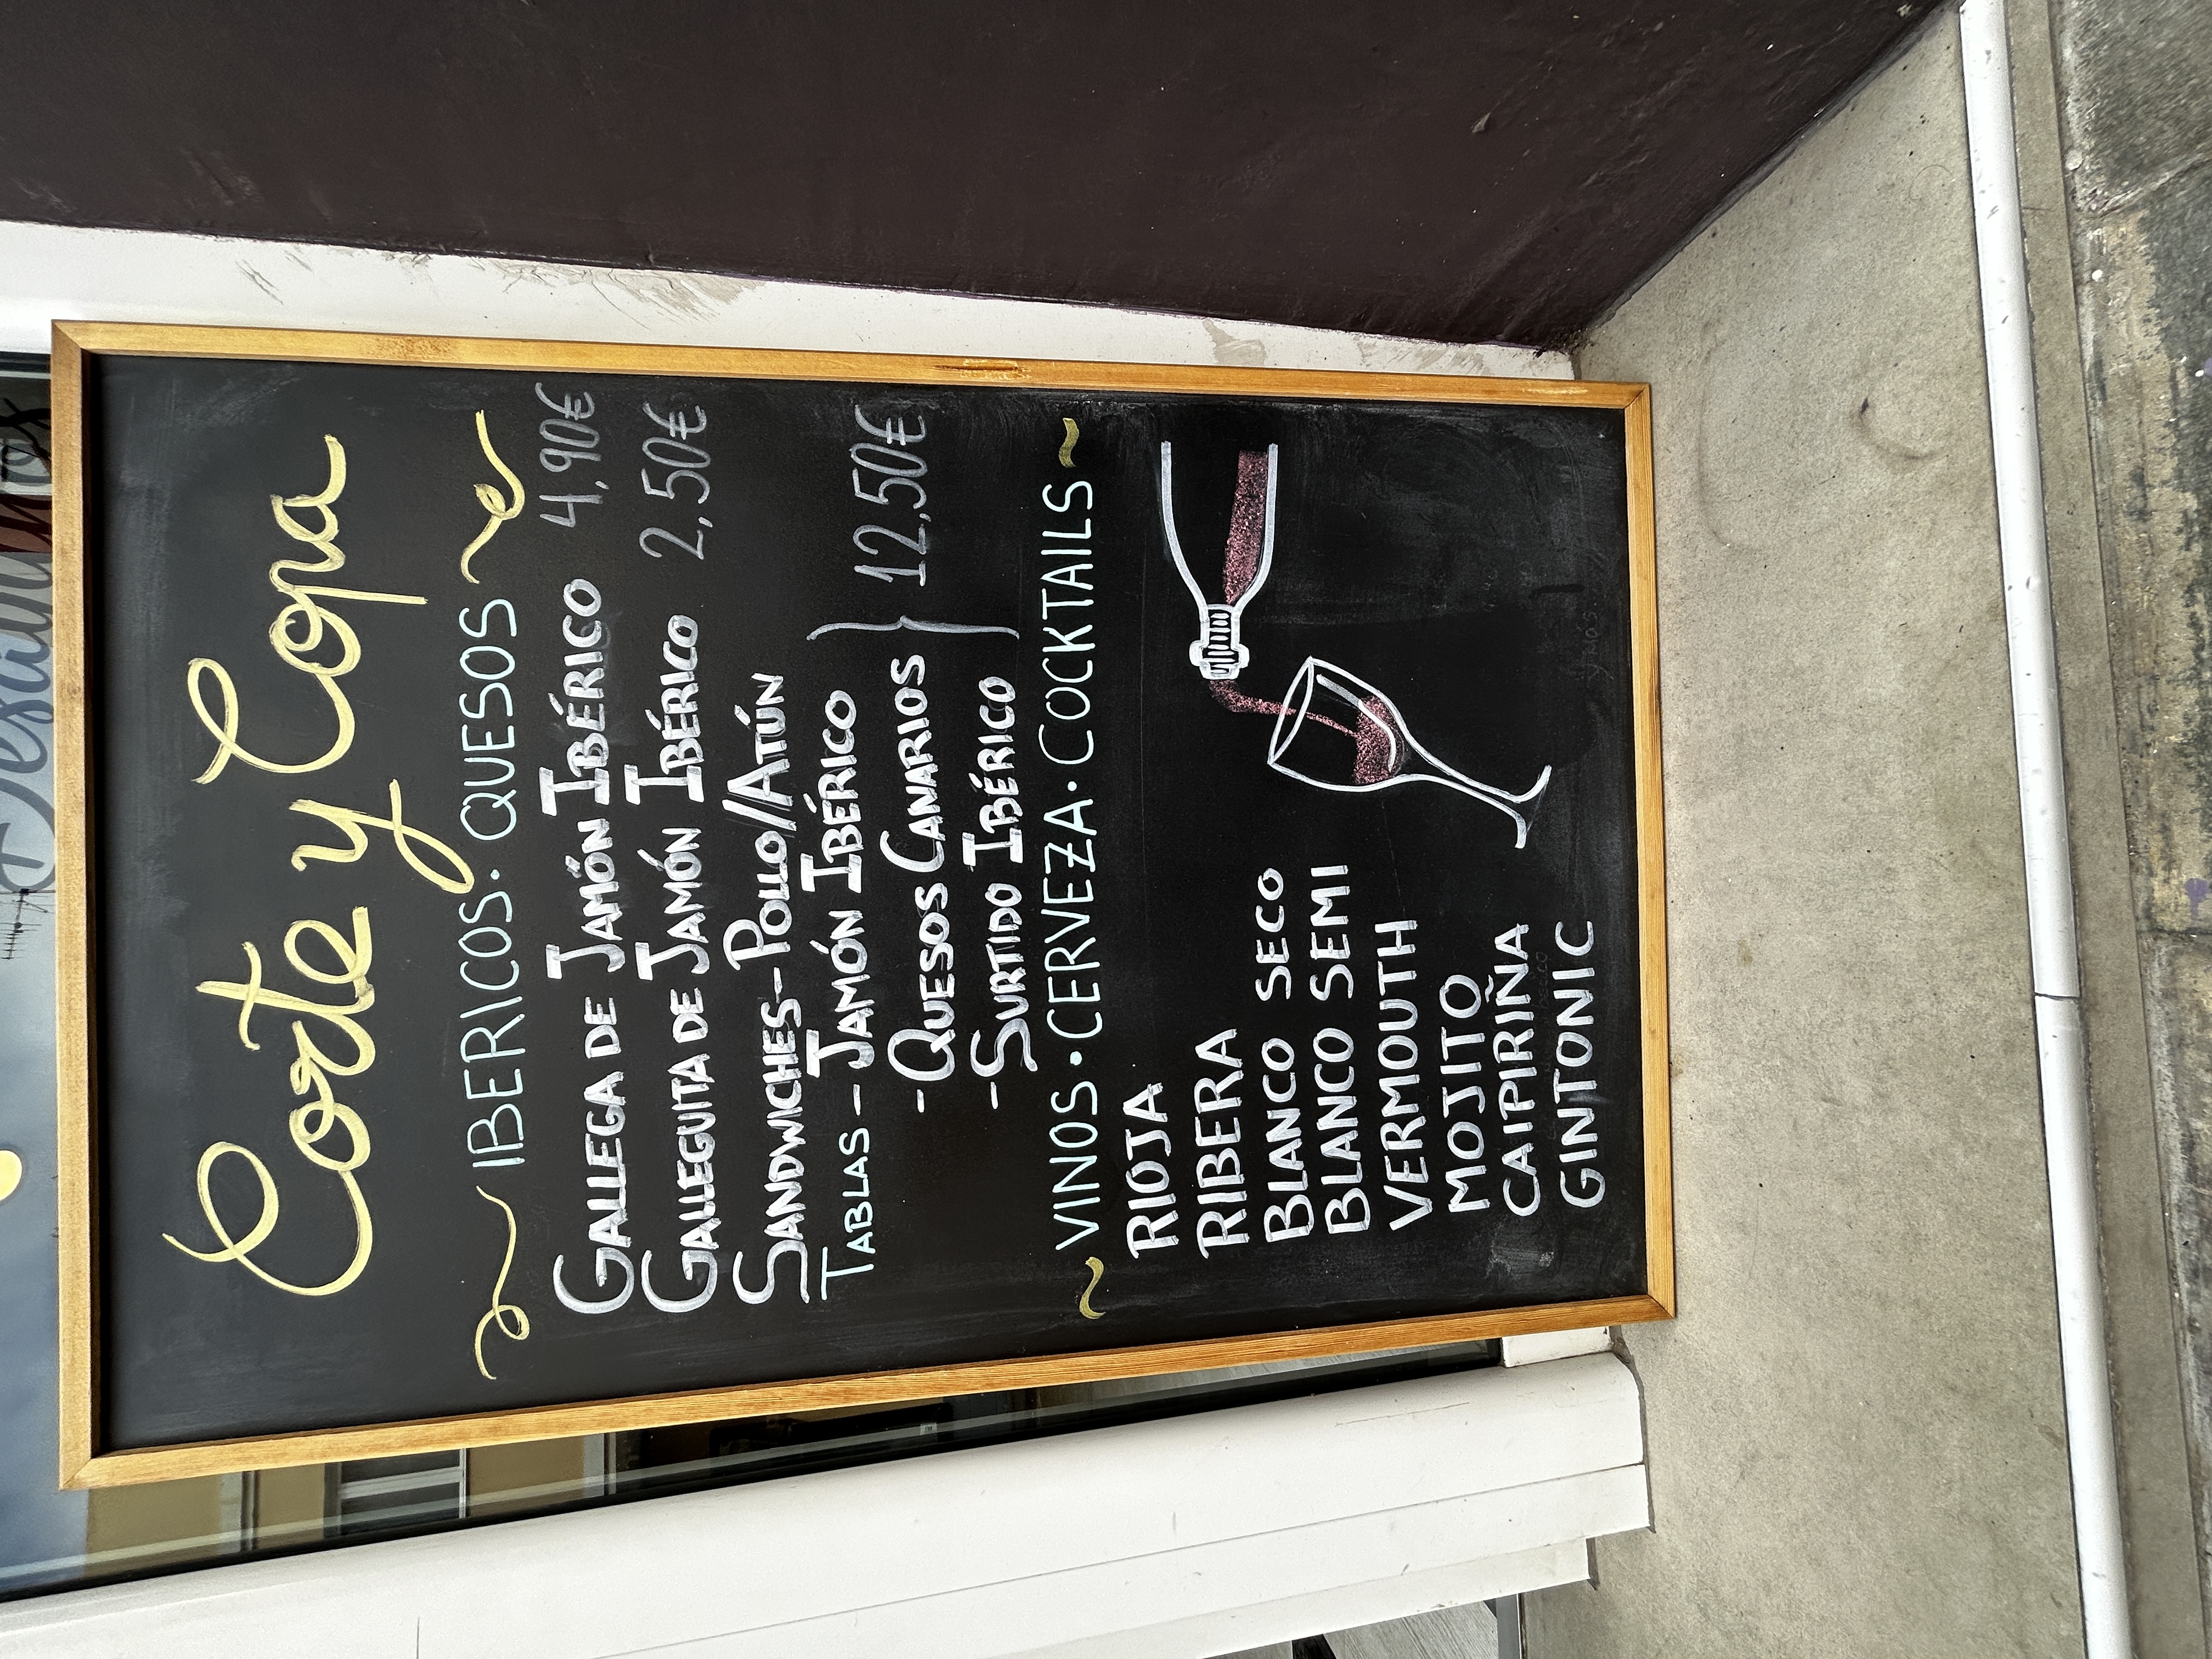 Corte y Copa
IBERICOS · QUESOS
GALLEGA DE JAMÓN IBÉRICO 4,90€
GALLEGUITA DE JAMÓN IBÉRICO 2,50€
SANDWICHES - POLLO//ATÚN
TABLAS - JAMÓN IBÉRICO
- QUESOS CANARIOS } 12,50€
- SURTIDO IBÉRICO
~ VINOS · CERVEZA · COCKTAILS ~
RIOJA
RIBERA
BLANCO SECO
BLANCO SEMI
VERMOUTH
MOJITO
CAIPIRIÑA
GINTONIC